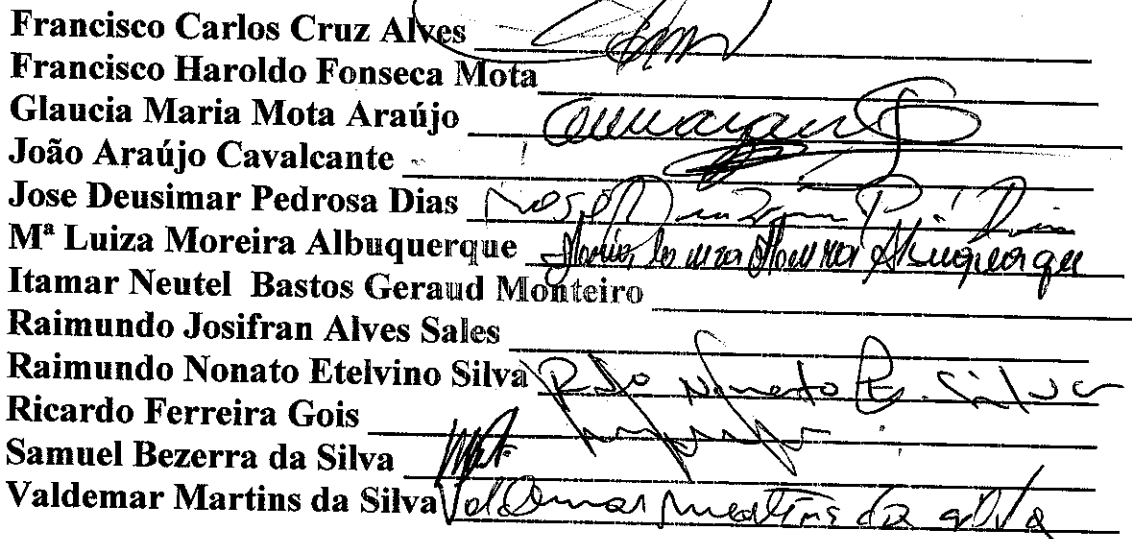 Francisco Carlos Cruz Alves
Francisco Haroldo Fonseca Mota
Glaucia Maria Mota Araújo
João Araújo Cavalcante
Jose Deusimar Pedrosa Dias
Mª Luiza Moreira Albuquerque Maria Luiza Moreira Albuquerque
Itamar Neutel Bastos Geraud Monteiro
Raimundo Josifran Alves Sales
Raimundo Nonato Etelvino Silva Rdo Nonato E. Silva
Ricardo Ferreira Gois
Samuel Bezerra da Silva
Valdemar Martins da Silva Valdemar Martins da Silva